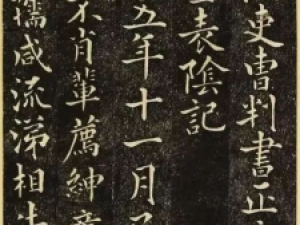 吏曹判書正
表陰記
五年十一月
不肖輩薦紳
孺咸流涕相